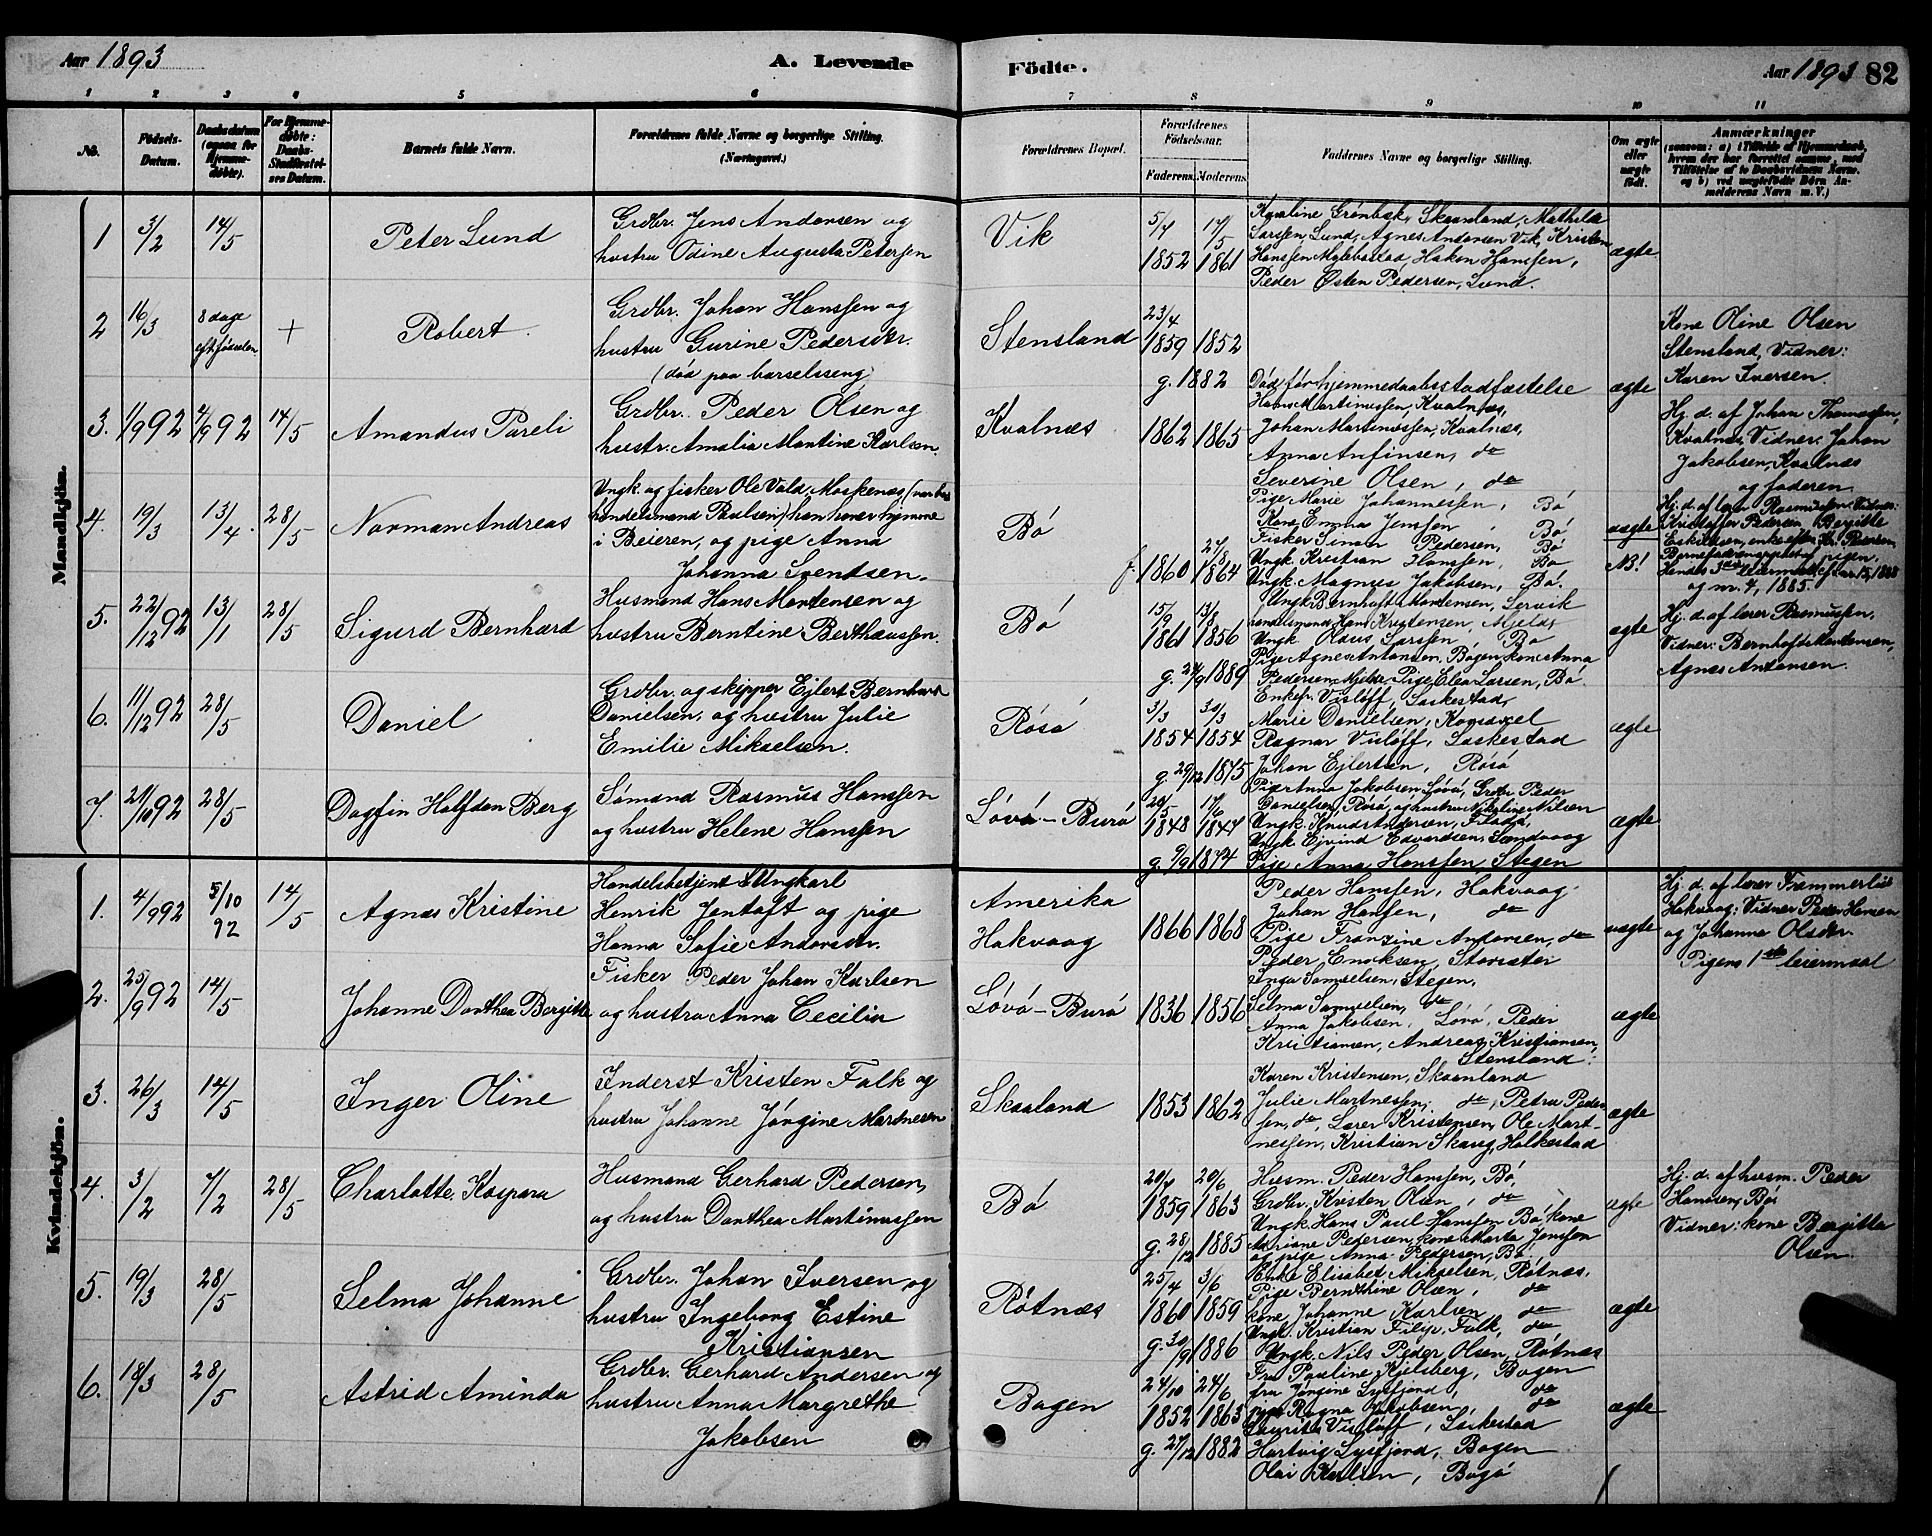 Aar 1893
A. Levende
Födte.
Aar 1893 82
1 2 3 4 5 6 7 8 9 10 11
No.
Födsels-
Datum.
Daabsdatum
(ogsaa for
Hjemme-
döbte).
For Hjemme-
döbte:
Daabs-
Stadfæstel-
ses Datum.
Barnets fulde Navn.
Forældrenes fulde Navne og borgerlige Stilling.
Forældrenes Bopæl.
Forældrenes
Födselsaar.
Faderens. Moderens.
Faddernes Navne og borgerlige Stilling.
Om ægte
eller
uægte
födt.
Anmærkninger
Mandkjön.
1 3/2 14/5 Peter Lund
Grdbr. Jens Andersen og
hustru Odine Augusta Petersen
Vik
5/4 17/5
1852 1861
Karoline Grønbek, Skaanland, Mathilde
Larssen, Lund, Agnes Andersen Vik, Kristen
Hanssen Myklebostad, Hakon Hanssen,
Peder Østen Pedersen, Lund.
ægte
2 16/3 8 dage
eft. fødselen + Robert.
Grdbr. Johan Hanssen og
hustru Gurine Pedersdtr.
(død paa barselsseng)
Stensland
23/4
1859 1852
g. 1882
Død før hjemmedaabsstadfæstelse
ægte
Kone Oline Olsen
Stensland, Vidner:
Karen Iversen.
3. 1/9 92 4/9 92 14/5 Amandus Pareli
Grdbr. Peder Olsen og
hustr. Amalia Mantine Karlsen.
Kvalnæs
1862 1865
Hans Martinussen, Kvalnæs,
Johan Martinussen, Kvalnæs,
Anna Anfinsen, do
Severine Olsen, do
Hj. d. af Johan Thomassen,
Kvalnæs, Vidner: Johan
Jakobsen, Kvalnæs
og faderen.
4. 19/3 13/4. 28/5 Norman Andreas
Ungk. og fisker Ole Vald. Moskenæs,
handelsmand Paulsen) han hører hjemme
i Beieren, og pige Anna
Johanna Svendsen.
Bø
27/8
f. 1860 1864
Pige Marie Johannessen, Bø
Kone Emma Jenssen, Bø
Fisker Simon Pedersen, Bø
Ungk. Kristian Hanssen, Bø
Ungk. Magnus Jakobsen, Bø.
uægte
NB!
Hj. d. af lærer Rasmussen. Vidner:
Kristoffer Pedersen, Bergitte
og m. 4, 1885.
5. 22/12 92 13/1 28/5 Sigurd Bernhard
Husmand Hans Mortensen og
hustru Berntine Berthaussen.
Bø
15/9 13/8
1861 1856
g. 24/9 1889
Ungk. Bernhoft Mortensen, Lervik
handelsmand Hans Kristensen, Mjelde
Ungk. Olaus Larssen, Bø
Pige Agnes Antonsen, Bogen, kone Anna
Pedersen, Mjelde, Pige Elea Larsen, Bø.
ægte
Hj. d. af lærer Rasmussen.
Vidner: Bernhoft Mortensen,
Agnes Antonsen.
6. 11/12 92 28/5 Daniel
Grdbr. og skipper Ejlert Bernhard
Danielsen, og hustru Julie
Emilie Mikaelsen.
Røsø
3/3 30/3
1854 1854
g. 29/12 1875
Enkefr. Visløff, Laskestad,
Marie Danielsen,
Ragnar Visløff, Laskestad
Johan Ejlertsen, Røsø
ægte
7. 21/10 92 28/5 Dagfin Halfdan Berg
Sømand Rasmus Hanssen
og hustru Helene Hanssen
Løvø-Burø
20/5 17/6
1848 1847
g. 9/9 1874
Pige Anna Jakobsen Løvø, Grdbr. Peder
Danielsen, Røsø, og hustru Nikoline Nilsen
Ungk. Knud Andersen, Fladø,
Ungk. Ejvind Edvardsen, Sandvaag
Pige Anna Hanssen Stegen
ægte
Kvindekjön.
1. 4/9 92 5/10
92 14/5 Agnes Kristine
Handelsbetjent & Ungkarl
Henrik Jentoft og pige
Hanna Sofie Andersdtr.
Amerika
Hakvaag
1866 1868
Peder Hanssen, Hakvaag.
Johan Hanssen, do
Pige Franzine Andersen, do
Peder Enoksen, Storsæter
uægte
Hj. d. af lærer Trømmerlid
Hakvaag: Vidner Peder Hansen
og Johanna Olsdtr.
Pigens 1ste leiermaal
2. 25/9 92 14/5 Johanne Dorthea Bergitte
Fisker Peder Johan Karlsen
og hustru Anna Cecilia
Løvø-Burø
1836 1856
Inga Samuelsen, Stegen,
Selma Samuelsen, do
Anna Jakobsen, Løvø, Peder
Kristiansen, Andreas Kristiansen,
Stensland.
ægte
3. 26/3 14/5 Inger Oline
Inderst Kristen Falk og
hustru Johanne Jørgine Martnesen
Skaaland
1853 1862
Karen Kristensen, Skaanland
Julie Martnessen, do, Petra Peder-
sen, do, Lærer Kristensen, Ole Mart-
nessen, Kristian Skaug, Holkestad
ægte
4. 3/2 7/2 28/5 Charlotte Kaspara
Husmand Gerhard Pedersen,
og hustru Dorthea Martinussen
Bø
20/4 20/6
1859 1863
g. 28/12 1885
Husm. Peder Hanssen, Bø,
Grdbr. Kristen Olsen, do
Ungk. Hans Paul Hanssen Bø, kone
Adriane Pedersen, kone Marta Jenssen
og pige Anna Pedersen, Bø.
ægte
Hj. d. af husm. Peder
Hanssen, Bø
Vidner: kone Bergitte
Olsen.
5. 19/3 28/5 Selma Johanne
Grdbr. Johan Iversen og
hustru Ingeborg Estine
Kristiansen
Røtnæs
25/4 3/6
1860 1859
g. 30/9 1886
Enke Elisabet Mikaelsen, Røtnæs,
Pige Bernthine Olsen, do
kone Johanne Karlsen, do
Ungk. Kristian Filip Falk, do
Ungk. Nils Peder Olsen, Røtnæs
ægte
6. 18/3 28/5 Astrid Aminda
Grdbr. Gerhard Andersen og
hustru Anna Margrethe
Jakobsen
Bogen
24/10 24/6
1852 1863
g. 27/12 1882
Fru Pauline Kjelsberg, Bogen
fru Jørgine Lysfjord, do
pige Ragna Jakobsen, do
Laurits Visløff, Laskestad
Hartvig Lysfjord, Bogen
Olai Karlsen, Bogø
ægte